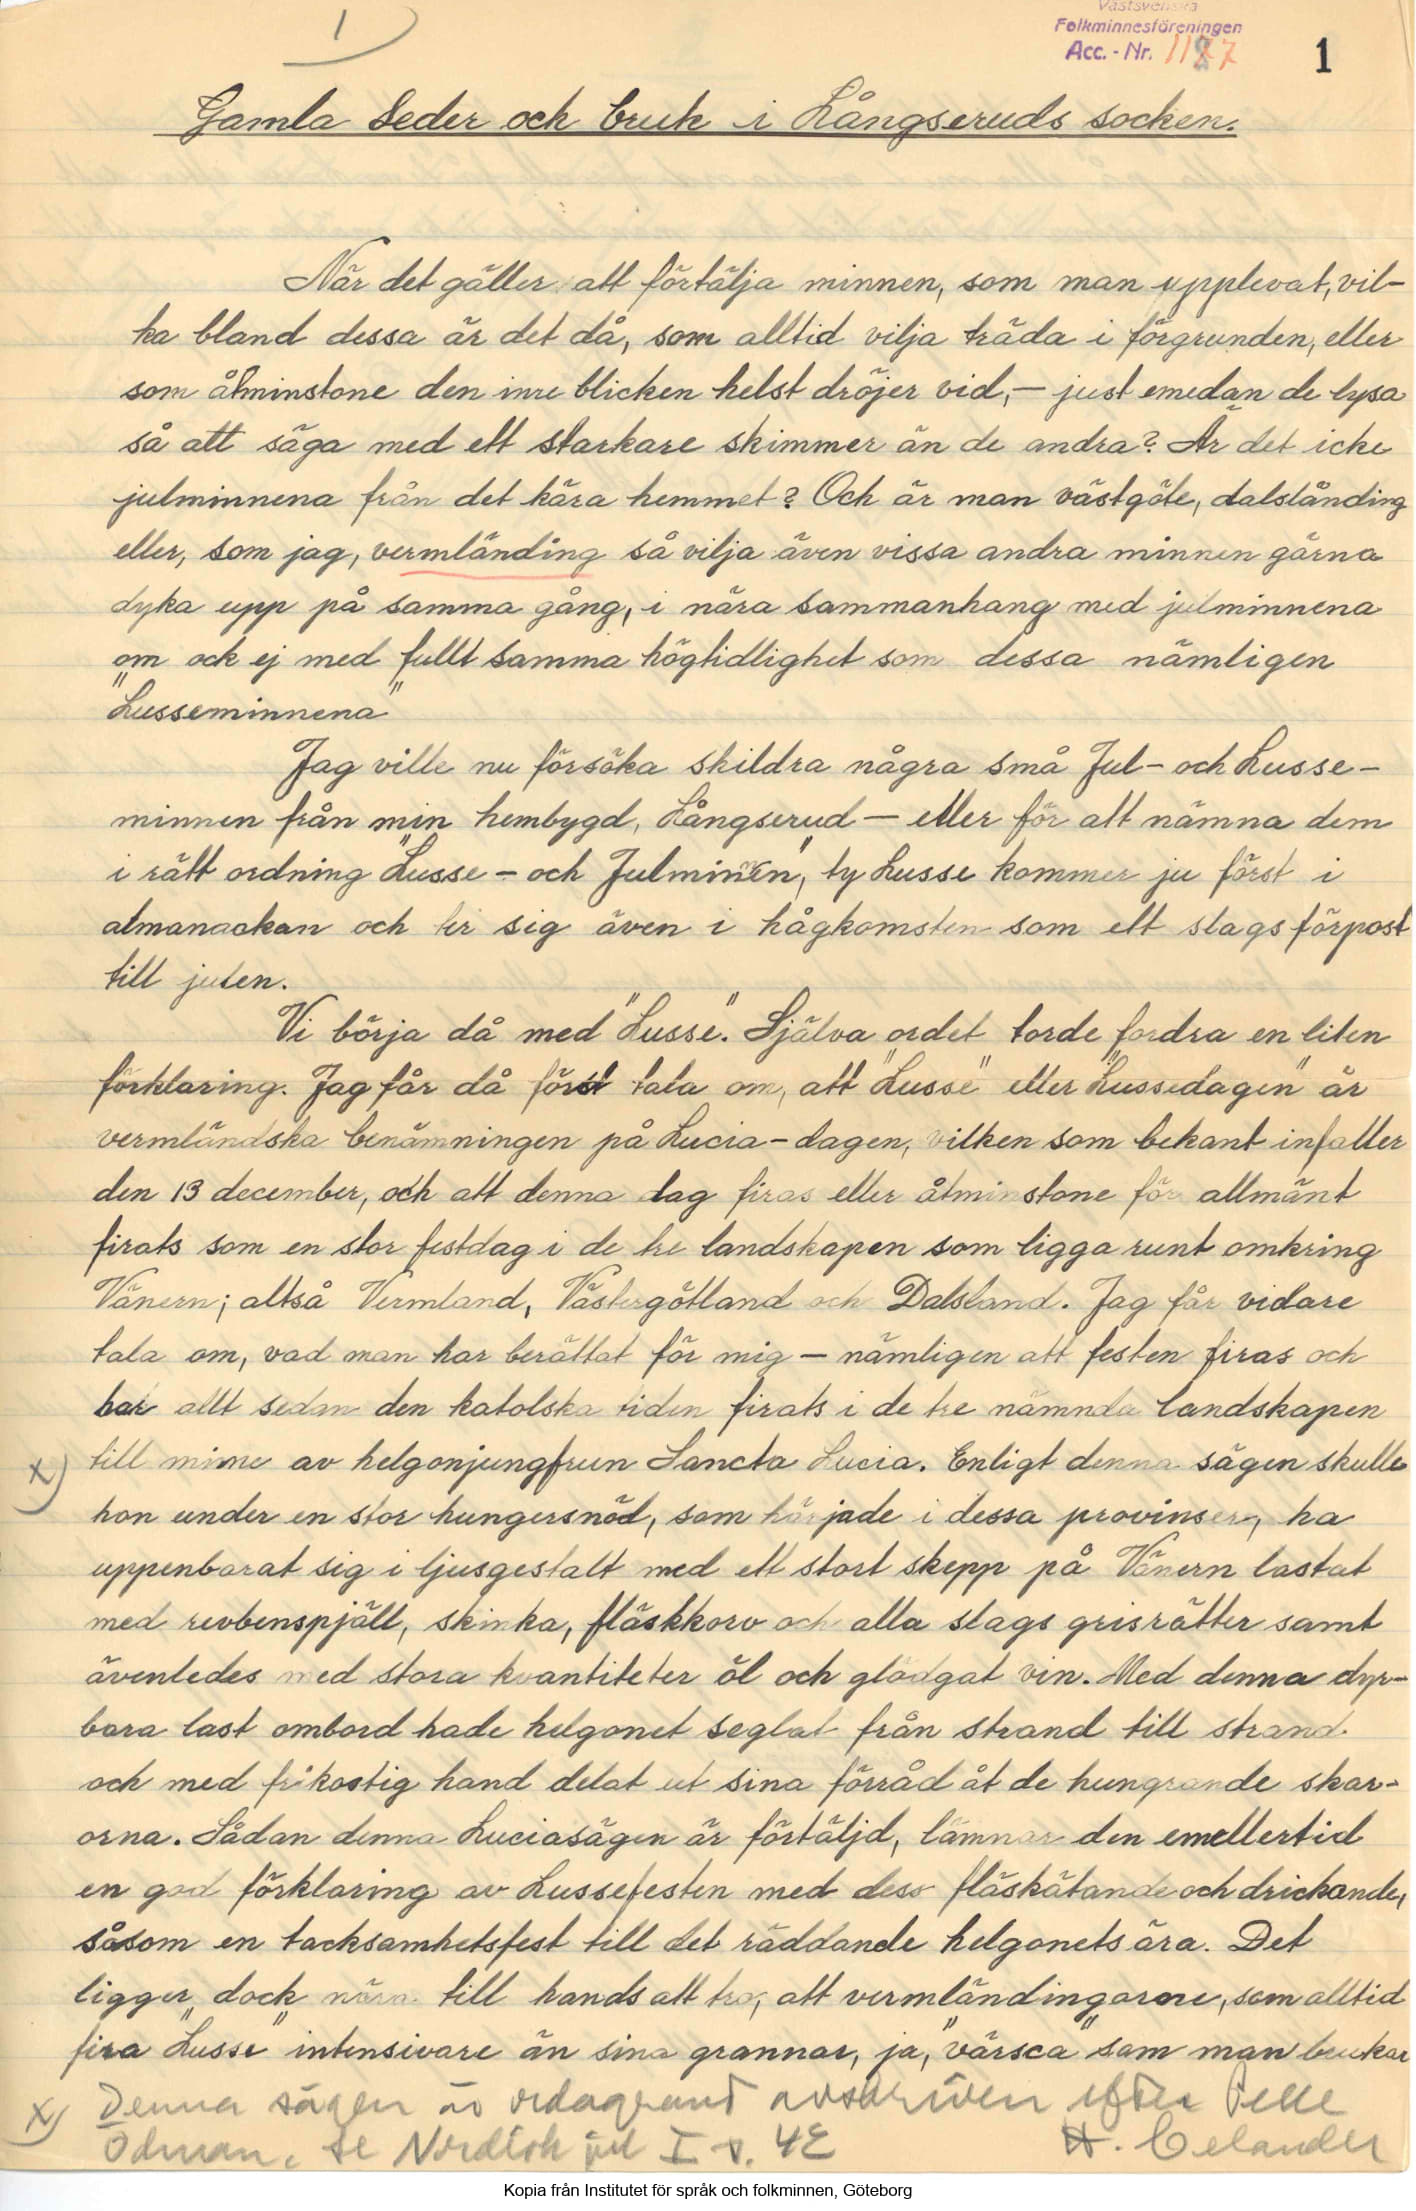 1
Västsvenska
Folkminnesföreningen
Acc. - Nr. 1127
1
Gamla Seder och bruk i Långseruds socken.
När det gäller att förtälja minnen, som man upplevat, vil-
ka bland dessa är det då, som alltid vilja träda i förgrunden, eller
som åtminstone den inre blicken helst dröjer vid, — just emedan de lysa
så att säga med ett starkare skimmer än de andra? Är det icke
julminnena från det kära hemmet? Och är man västgöte, dalsländing
eller, som jag, vermländing så vilja även vissa andra minnen gärna
dyka upp på samma gång, i nära sammanhang med julminnena
om ock ej med fullt samma högtidlighet som dessa nämligen
"Lusseminnena"
Jag ville nu försöka skildra några små Jul- och Lusse-
minnen från min hembygd, Långserud — eller för att nämna dem
i rätt ordning "Lusse- och Julminnen", ty Lusse kommer ju först i
almanackan och ter sig även i hågkomsten som ett slags förpost
till julen.
Vi börja då med "Lusse". Själva ordet torde fordra en liten
förklaring. Jag får då först tala om, att "Lusse" eller "Lussedagen" är
vermländska benämningen på Lucia-dagen, vilken som bekant infaller
den 13 december, och att denna dag firas eller åtminstone för allmänt
firats som en stor festdag i de tre landskapen som ligga runt omkring
Vänern; altså Vermland, Västergötland och Dalsland. Jag får vidare
tala om, vad man har berättat för mig — nämligen att festen firas och
har allt sedan den katolska tiden firats i de tre nämnda landskapen
x) till minne av helgonjungfrun Sancta Lucia. Enligt denna sägen skulle
hon under en stor hungersnöd, som härjade i dessa provinser, ha
uppenbarat sig i ljusgestalt med ett stort skepp på Vänern lastat
med revbenspjäll, skinka, fläskkorv och alla slags grisrätter samt
ävenledes med stora kvantiteter öl och glödgat vin. Med denna dyr-
bara last ombord hade helgonet seglat från strand till strand
och med frikostig hand delat ut sina förråd åt de hungrande skar-
orna. Sådan denna Luciasägen är förtäljd, lämnar den emellertid
en god förklaring av Lussefesten med dess fläskätande och drickande,
såsom en tacksamhetsfest till det räddande helgonets ära. Det
ligger dock nära till hands att tro, att vermländingarne, som alltid
fira "Lusse" intensivare än sina grannar, ja, "värsca" som man brukar
x) Denna sägen är ordagrant avskriven efter Pelle
Ödman, se Nordisk jul I s. 42 H. Celander
Kopia från Institutet för språk och folkminnen, Göteborg